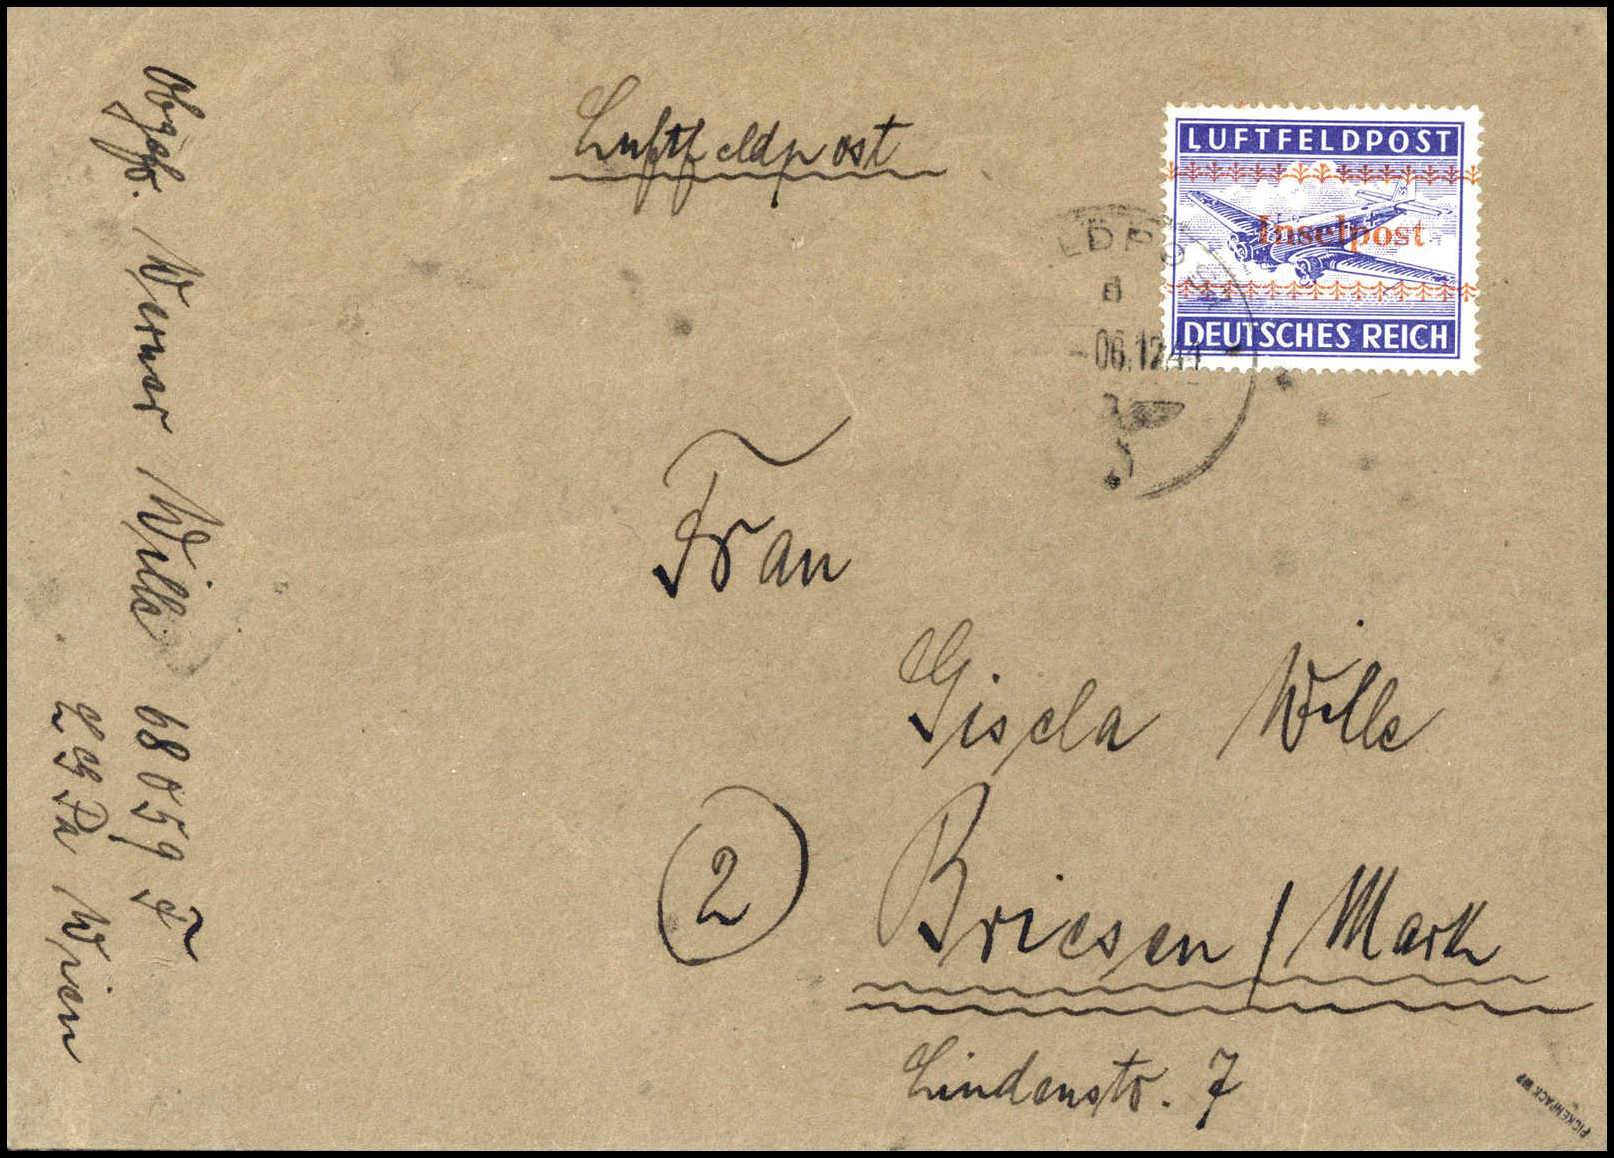 Luftfeldpost
LUFTFELDPOST
Inselpost
DEUTSCHES REICH
LDPOST
d
-06.12.44
Frau
Gisela Wille
2
Briesen / Mark
Lindenstr. 7
Obgefr. Werner Wille 68059 F
LGPA Wien
PICKENPACK WP